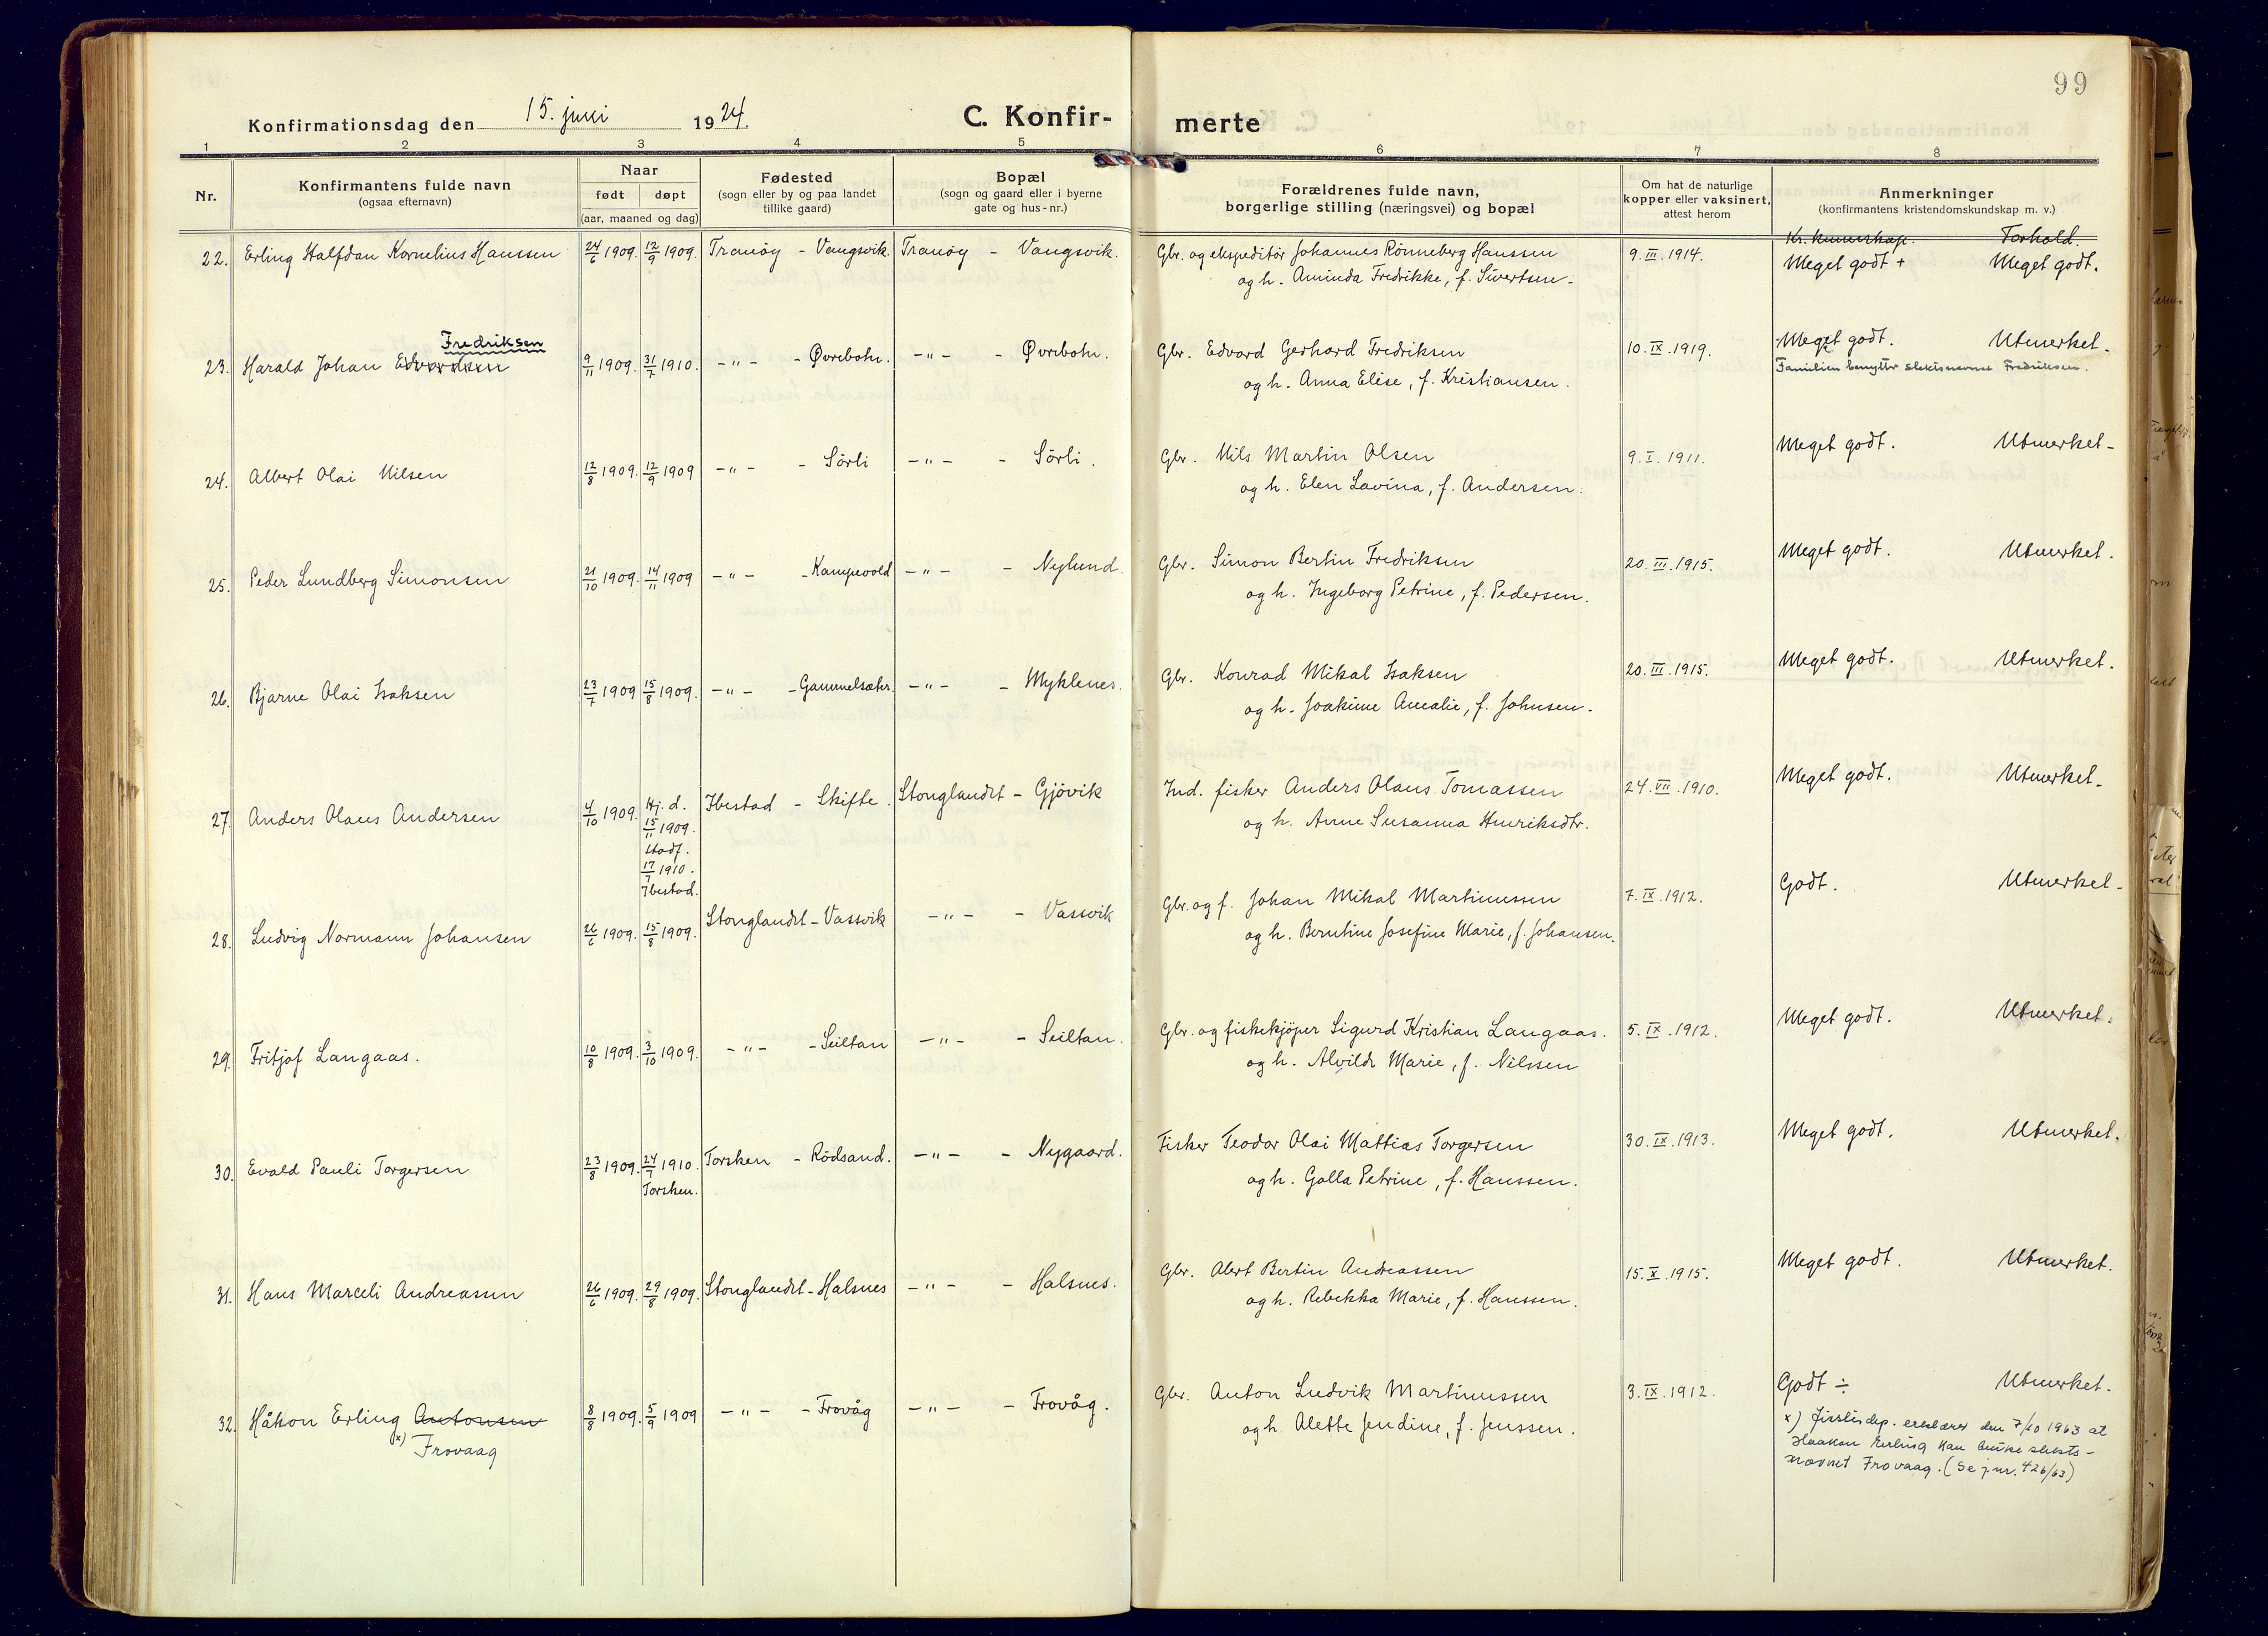 99
Konfirmationsdag den 15. juni 1924.
C. Konfir- merte
1 2 3 4 5 6 7 8
Nr.
Konfirmantens fulde navn
(ogsaa efternavn)
Naar
født døpt
(aar, maaned og dag)
Fødested
(sogn eller by og paa landet
tillike gaard)
Bopæl
(sogn og gaard eller i byerne
gate og hus-nr.)
Forældrenes fulde navn,
borgerlige stilling (næringsvei) og bopæl
Om hat de naturlige
kopper eller vaksinert,
attest herom
Anmerkninger
(konfirmantens kristendomskundskap m. v.)
Kr. kunnskap. Forhold.
22. Erling Halfdan Kornelius Hanssen 24/6 1909. 12/9 1909. Tranøy - Vangsvik. Tranøy - Vangsvik. Gbr. og ekspeditör Johannes Rönneberg Hanssen 9. III. 1914. Meget godt + Meget godt.
og h. Aminda Fredrikke, f. Sivertsen.
Fredriksen
23. Harald Johan Edvardsen 9/11 1909. 31/7 1910. -"- - Øvrebotn. -"- - Øvrebotn. Gbr. Edvard Gerhard Fredriksen 10. IX. 1919. Meget godt. Utmerket.
og h. Anna Elise, f. Kristiansen. Familien benytter slektsnavnet Fredriksen.
24. Albert Olai Nilsen 12/8 1909. 12/9 1909 -"- - Sörli -"- - Sörli. Gbr. Nils Martin Olsen 9. I. 1911. Meget godt. Utmerket.
og h. Elen Lavina, f. Andersen.
25. Peder Lundberg Simonsen 21/10 1909. 14/11 1909 -"- - Kampevold -"- - Nylund. Gbr. Simon Bertin Fredriksen 20. III. 1915. Meget godt. Utmerket.
og h. Ingeborg Petrine, f. Pedersen.
26. Bjarne Olai Isaksen 23/7 1909 15/8 1909. -"- - Gammelsæter. -"- - Myklenes. Gbr. Konrad Mikal Isaksen 20. III. 1915. Meget godt. Utmerket.
og h. Joakime Amalie, f. Johnsen.
27. Anders Olaus Andersen 4/10 1909. Hj. d. 15/11 1909. Stadf. 17/7 1910. Ibestad. Ibestad - Skifte. Stonglandet - Gjövik Ind. fisker Anders Olaus Tomassen 24. VII. 1910. Meget godt. Utmerket.
og h. Anne Susanna Henriksdtr.
28. Ludvig Normann Johansen 26/6 1909. 15/8 1909. Stonglandet - Vassvik -"- - Vassvik Gbr. og f. Johan Mikal Martinussen 7. IX. 1912. Godt. Utmerket.
og h. Berntine Josefine Marie, f. Johansen.
29. Fritjof Langaas. 10/8 1909. 3/10 1909. -"- - Seiltan -"- - Seiltan. Gbr. og fiskekjöper Sigurd Kristian Langaas. 5. IX. 1912. Meget godt. Utmerket.
og h. Alvilde Marie, f. Nilssen
30. Evald Pauli Torgersen 23/8 1909. 24/7 1910. Torsken. Torsken - Rödsand. -"- - Nygaard. Fisker Teodor Olai Mattias Torgersen 30. IX. 1913. Meget godt. Utmerket.
og h. Golla Petrine, f. Hanssen.
31. Hans Marceli Andreassen 26/6 1909. 29/8 1909. Stonglandet - Halsnes -"- - Halsnes. Gbr. Albert Bertin Andreassen 15. X. 1915. Meget godt. Utmerket.
og h. Rebekka Marie, f. Hanssen.
32. Håkon Erling Antonsen 8/8 1909. 5/9 1909 -"- - Frovåg -"- - Frovåg. Gbr. Anton Ludvik Martinussen 3. IX. 1912. Godt ÷ Utmerket.
x) Frovaag
og h. Alette Jendine, f. Jenssen.
x) Jisstisdep. erklærer den 7/10 1963 at
Haakon Erling kan bruke slekts-
navnet Frovaag. (Se j.nr. 426/63)